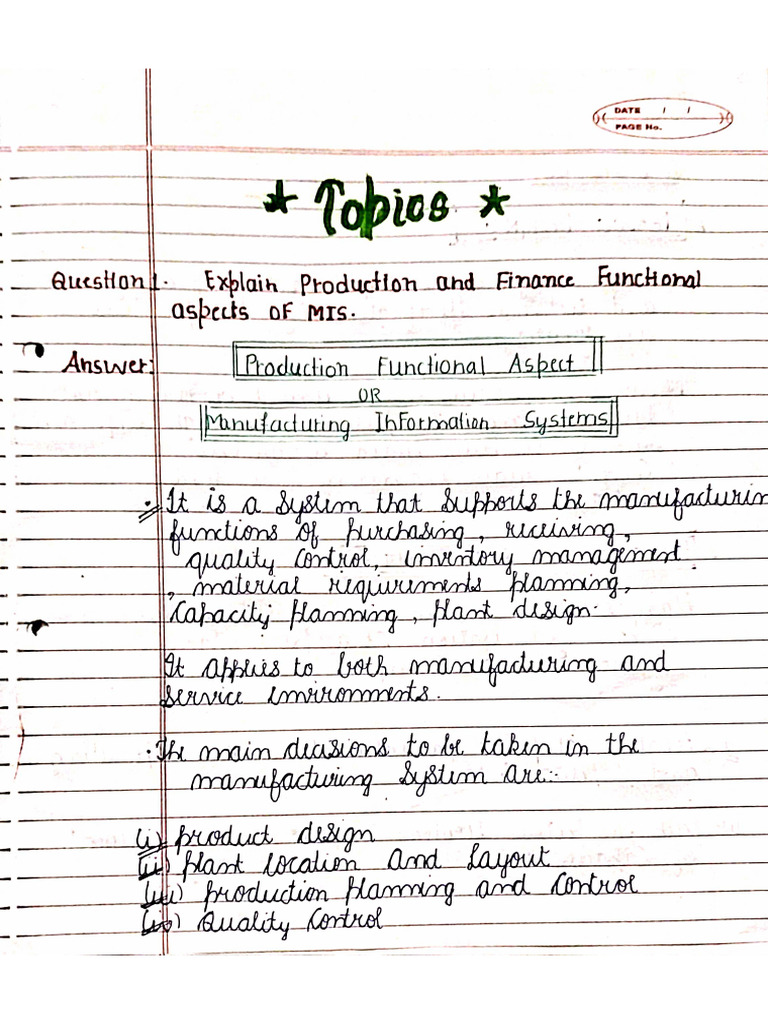 DATE / /
PAGE No.
★ Topics ★
Question 1. Explain Production and Finance Functional
aspects of MIS.
Answer: Production Functional Aspect
OR
Manufacturing Information Systems
• It is a system that supports the manufacturin
functions of purchasing, receiving,
quality control, inventory management
, material requirements planning,
capacity planning, plant design.
It applies to both manufacturing and
service environments.
• The main decisions to be taken in the
manufacturing system are:-
(i) product design
(ii) plant location and layout
(iii) production planning and control
(iv) Quality control